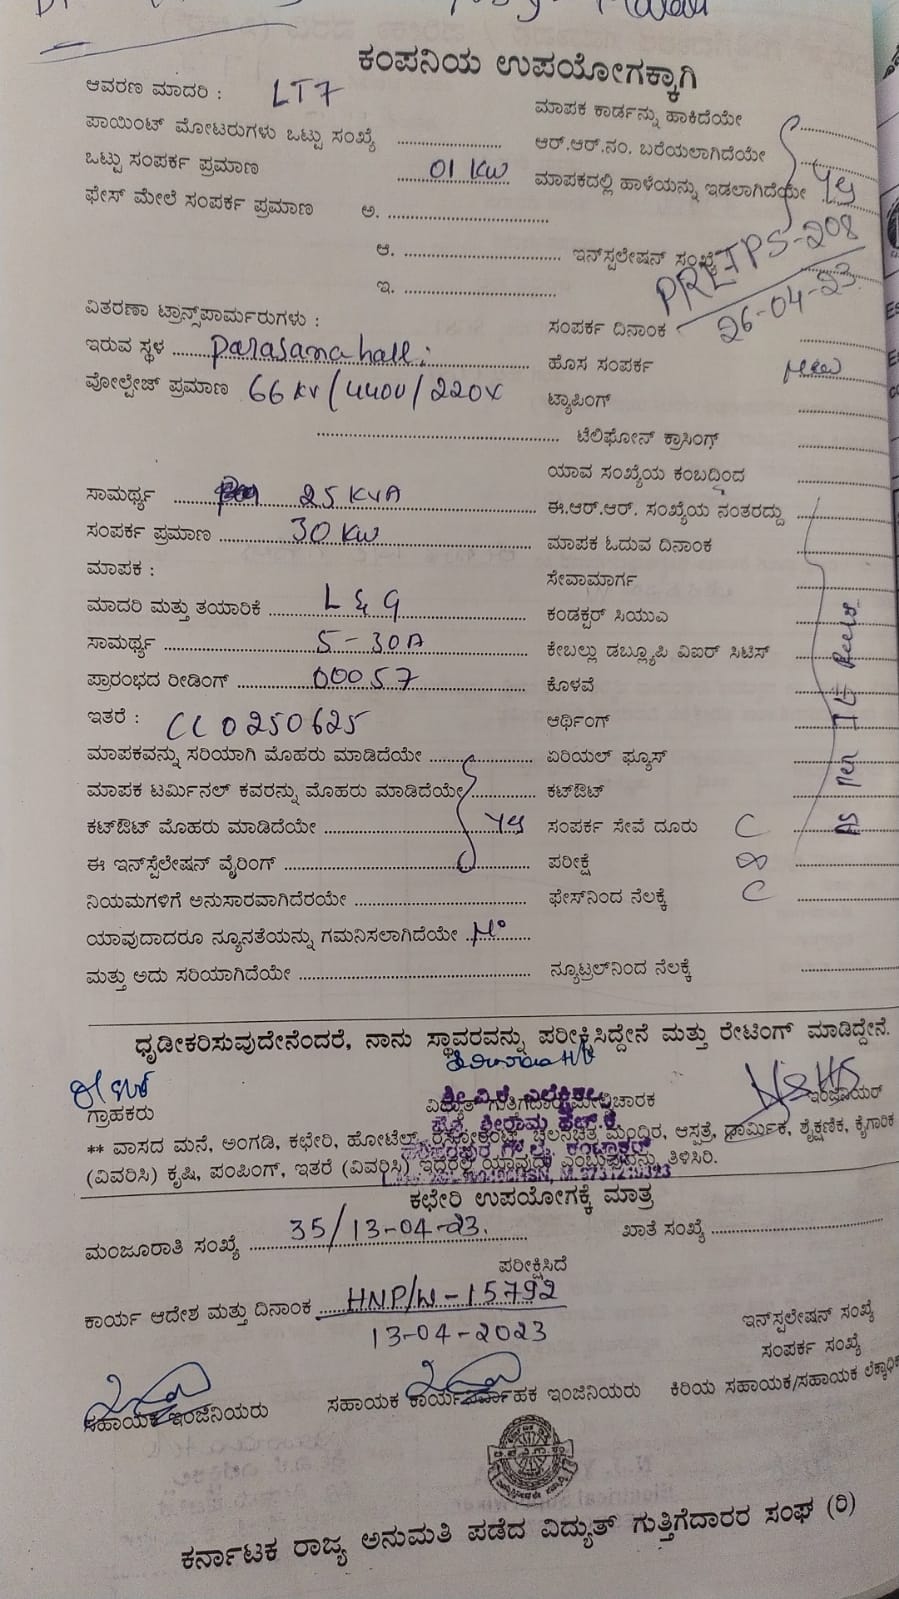 ಕಂಪನಿಯ ಉಪಯೋಗಕ್ಕಾಗಿ
ಆವರಣ ಮಾದರಿ : LT7
ಮಾಪಕ ಕಾರ್ಡನ್ನು ಹಾಕಿದೆಯೇ
ಪಾಯಿಂಟ್ ಮೋಟರುಗಳು ಒಟ್ಟು ಸಂಖ್ಯೆ
ಆರ್.ಆರ್.ನಂ. ಬರೆಯಲಾಗಿದೆಯೇ
ಒಟ್ಟು ಸಂಪರ್ಕ ಪ್ರಮಾಣ 01 KW
ಮಾಪಕದಲ್ಲಿ ಹಾಳೆಯನ್ನು ಇಡಲಾಗಿದೆಯೇ
ಫೇಸ್ ಮೇಲೆ ಸಂಪರ್ಕ ಪ್ರಮಾಣ ಅ.
ಆ.
ಇನ್‌ಸ್ಪಲೇಷನ್ ಸಂಖ್ಯೆ PRETPS-208
ಇ.
26-04-23
ವಿತರಣಾ ಟ್ರಾನ್ಸ್‌ಪಾರ್ಮರುಗಳು :
ಸಂಪರ್ಕ ದಿನಾಂಕ
ಇರುವ ಸ್ಥಳ Parasanahalli
ಹೊಸ ಸಂಪರ್ಕ New
ವೋಲ್ಟೇಜ್ ಪ್ರಮಾಣ 66 KV/4400/220V
ಟ್ಯಾಪಿಂಗ್
ಟೆಲಿಫೋನ್ ಕ್ರಾಸಿಂಗ್
ಯಾವ ಸಂಖ್ಯೆಯ ಕಂಬದಿಂದ
ಸಾಮರ್ಥ್ಯ 25 KVA
ಈ.ಆರ್.ಆರ್. ಸಂಖ್ಯೆಯ ನಂತರದ್ದು
ಸಂಪರ್ಕ ಪ್ರಮಾಣ 30 KW
ಮಾಪಕ ಓದುವ ದಿನಾಂಕ
ಮಾಪಕ :
ಸೇವಾಮಾರ್ಗ
ಮಾದರಿ ಮತ್ತು ತಯಾರಿಕೆ L & G
ಕಂಡಕ್ಟರ್ ಸಿಯುಎ
ಸಾಮರ್ಥ್ಯ 5-30A
ಕೇಬಲ್ಲು ಡಬ್ಲ್ಯೂಪಿ ವಿಐರ್ ಸಿಟಿಸ್
ಪ್ರಾರಂಭದ ರೀಡಿಂಗ್ 00057
ಕೊಳವೆ
ಇತರೆ : CL0250625
ಆರ್ಥಿಂಗ್
ಮಾಪಕವನ್ನು ಸರಿಯಾಗಿ ಮೊಹರು ಮಾಡಿದೆಯೇ
ಏರಿಯಲ್ ಫ್ಯೂಸ್
ಮಾಪಕ ಟರ್ಮಿನಲ್ ಕವರನ್ನು ಮೊಹರು ಮಾಡಿದೆಯೇ
ಕಟ್ಔಟ್
ಕಟ್ಔಟ್ ಮೊಹರು ಮಾಡಿದೆಯೇ
ಸಂಪರ್ಕ ಸೇವೆ ದೂರು
ಈ ಇನ್‌ಸ್ಪೆಲೇಷನ್ ವೈರಿಂಗ್
ಪರೀಕ್ಷೆ
ನಿಯಮಗಳಿಗೆ ಅನುಸಾರವಾಗಿದೆರಯೇ
ಫೇಸ್‌ನಿಂದ ನೆಲಕ್ಕೆ
ಯಾವುದಾದರೂ ನ್ಯೂನತೆಯನ್ನು ಗಮನಿಸಲಾಗಿದೆಯೇ No
ಮತ್ತು ಅದು ಸರಿಯಾಗಿದೆಯೇ
ನ್ಯೂಟ್ರಲ್‌ನಿಂದ ನೆಲಕ್ಕೆ
ಧೃಡೀಕರಿಸುವುದೇನೆಂದರೆ, ನಾನು ಸ್ಥಾವರವನ್ನು ಪರೀಕ್ಷಿಸಿದ್ದೇನೆ ಮತ್ತು ರೇಟಿಂಗ್ ಮಾಡಿದ್ದೇನೆ.
ಗ್ರಾಹಕರು
ಇಂಜಿನಿಯರ್
** ವಾಸದ ಮನೆ, ಅಂಗಡಿ, ಕಛೇರಿ, ಹೋಟೆಲ್, ರೆಸ್ಟೋರೆಂಟ್, ಚಲನಚಿತ್ರ ಮಂದಿರ, ಆಸ್ಪತ್ರೆ, ಧಾರ್ಮಿಕ, ಶೈಕ್ಷಣಿಕ, ಕೈಗಾರಿಕೆ
(ವಿವರಿಸಿ) ಕೃಷಿ, ಪಂಪಿಂಗ್, ಇತರೆ (ವಿವರಿಸಿ) ಇದರಲ್ಲಿ ಯಾವುದು ಎಂಬುವುದನ್ನು ತಿಳಿಸಿರಿ.
ಕಛೇರಿ ಉಪಯೋಗಕ್ಕೆ ಮಾತ್ರ
ಮಂಜೂರಾತಿ ಸಂಖ್ಯೆ 35/13-04-23.
ಖಾತೆ ಸಂಖ್ಯೆ
ಪರೀಕ್ಷಿಸಿದೆ
ಕಾರ್ಯ ಆದೇಶ ಮತ್ತು ದಿನಾಂಕ HNP/W-15792
13-04-2023
ಇನ್‌ಸ್ಪಲೇಷನ್ ಸಂಖ್ಯೆ
ಸಂಪರ್ಕ ಸಂಖ್ಯೆ
ಸಹಾಯಕ ಇಂಜಿನಿಯರು
ಸಹಾಯಕ ಕಾರ್ಯನಿರ್ವಾಹಕ ಇಂಜಿನಿಯರು
ಕಿರಿಯ ಸಹಾಯಕ/ಸಹಾಯಕ
ಕರ್ನಾಟಕ ರಾಜ್ಯ ಅನುಮತಿ ಪಡೆದ ವಿದ್ಯುತ್ ಗುತ್ತಿಗೆದಾರರ ಸಂಘ (ರಿ)